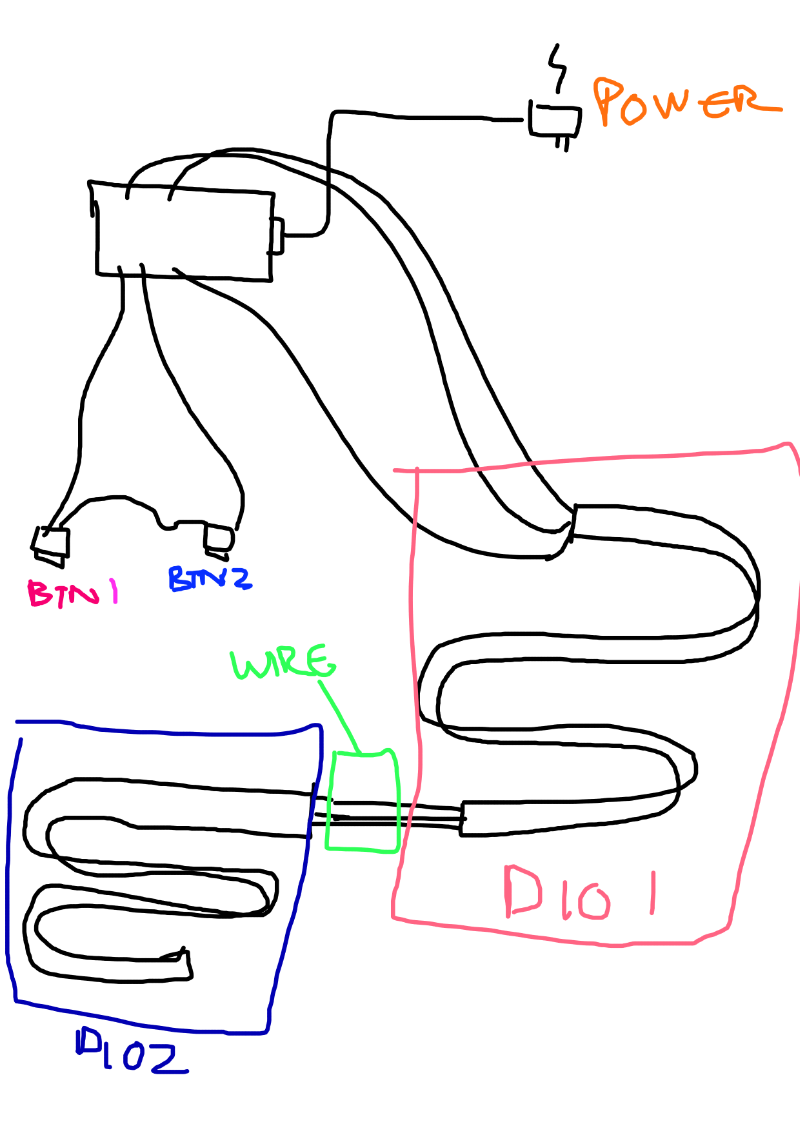 POWER
BTN1
BTN2
WIRE
DIO 1
DIO2